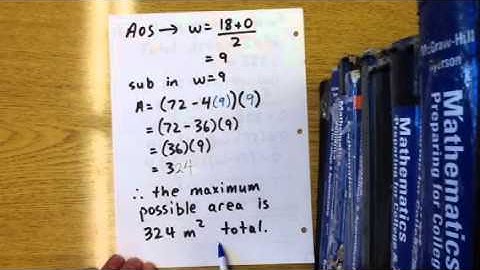 AOS → w = 18+0
2
= 9
sub in w=9
A=(72-4(9))(9)
=(72-36)(9)
=(36)(9)
= 324
∴ the maximum
possible area is
324 m² total.
McGraw-Hill
Ryerson
Mathematics
Preparing for College
Mathematics
Preparing for College
Mathematics
Preparing for College
Mathematics